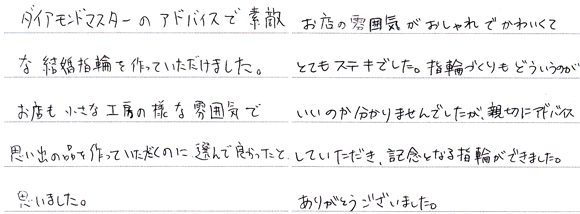 ダイアモンドマスターのアドバイスで素敵
な結婚指輪を作っていただけました。
お店も小さな工房の様な雰囲気で
思い出の品を作っていただくのに、選んで良かったと
思いました。
お店の雰囲気がおしゃれでかわいくて
とてもステキでした。指輪づくりもどういうのが
いいのか分かりませんでしたが、親切にアドバイス
していただき、記念となる指輪ができました。
ありがとうございました。